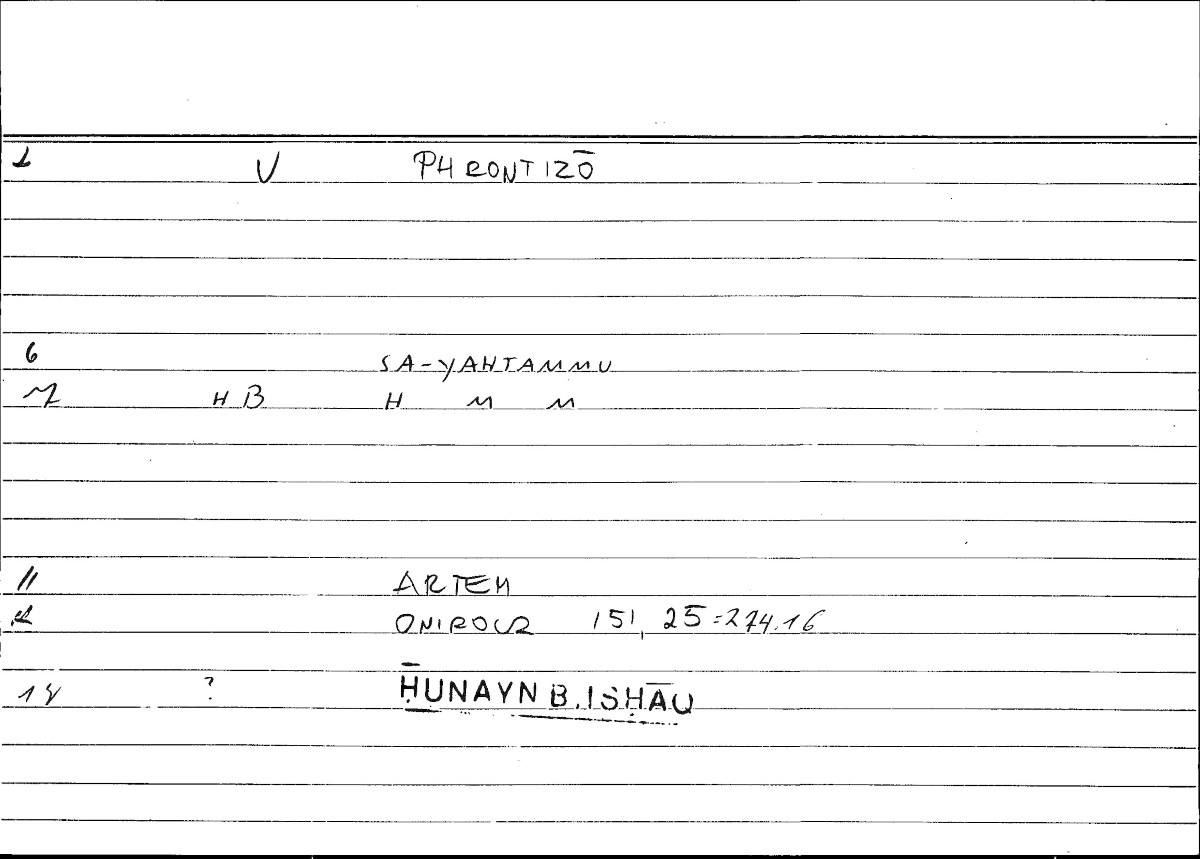 1 V PHRONTIZŌ
6 SA-YAHTAMMU
7 HB H M M
11 ARTEM
ONIROCR 151, 25=274.16
14 ? ḤUNAYN B. ISḤĀQ